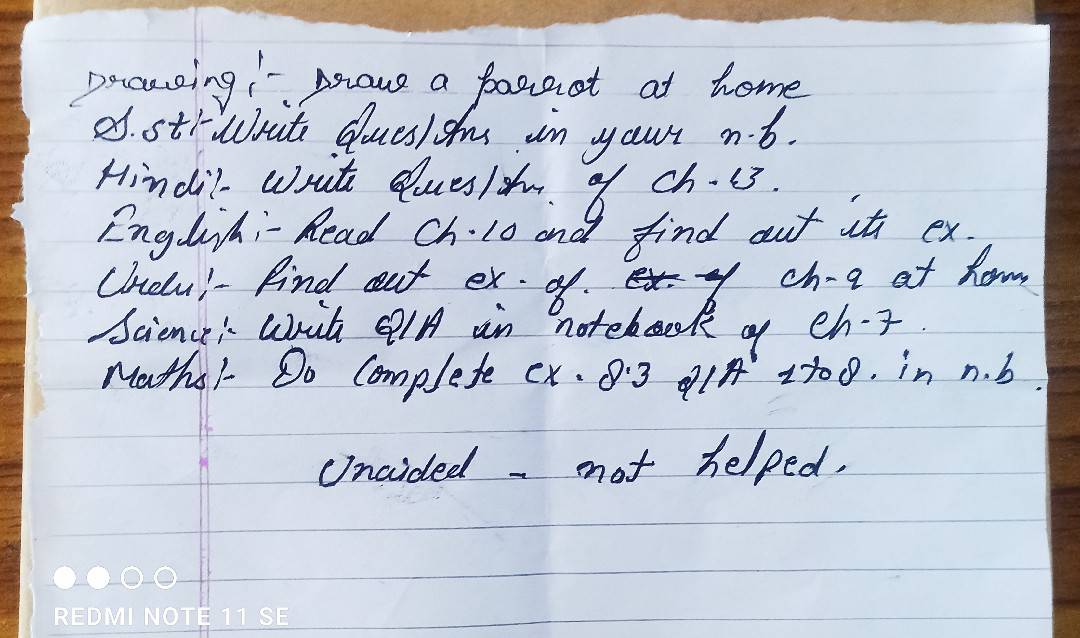 Drawing:- Draw a parrot at home
S.st:- Write Ques/Ans in your n.b.
Hindi:- Write Ques/An of Ch-13.
English:- Read Ch.10 and find out its ex.
Urdu:- Find out ex. of. ex. of ch-9 at home
Science:- Write Q/A in notebook of Ch-7.
Maths:- Do Complete ex. 8.3 Q/A 1 to 8. in n.b.
Unaided - not helped.
REDMI NOTE 11 SE